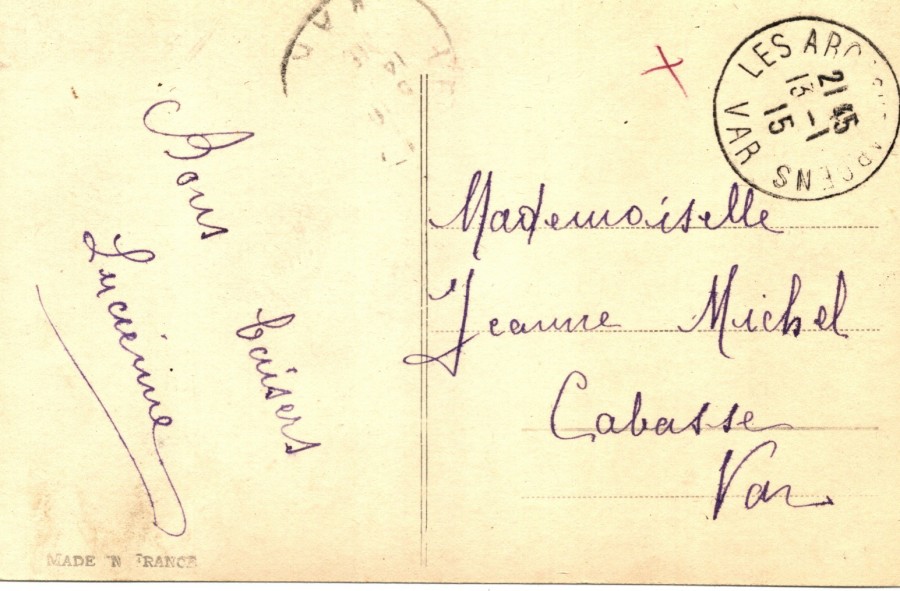 Bons
baisers
Lucienne
MADE IN FRANCE
LES ARCS SUR ARGENS
21 45
13 - 1
15
VAR
Mademoiselle
Jeanne Michel
Cabasse
Var